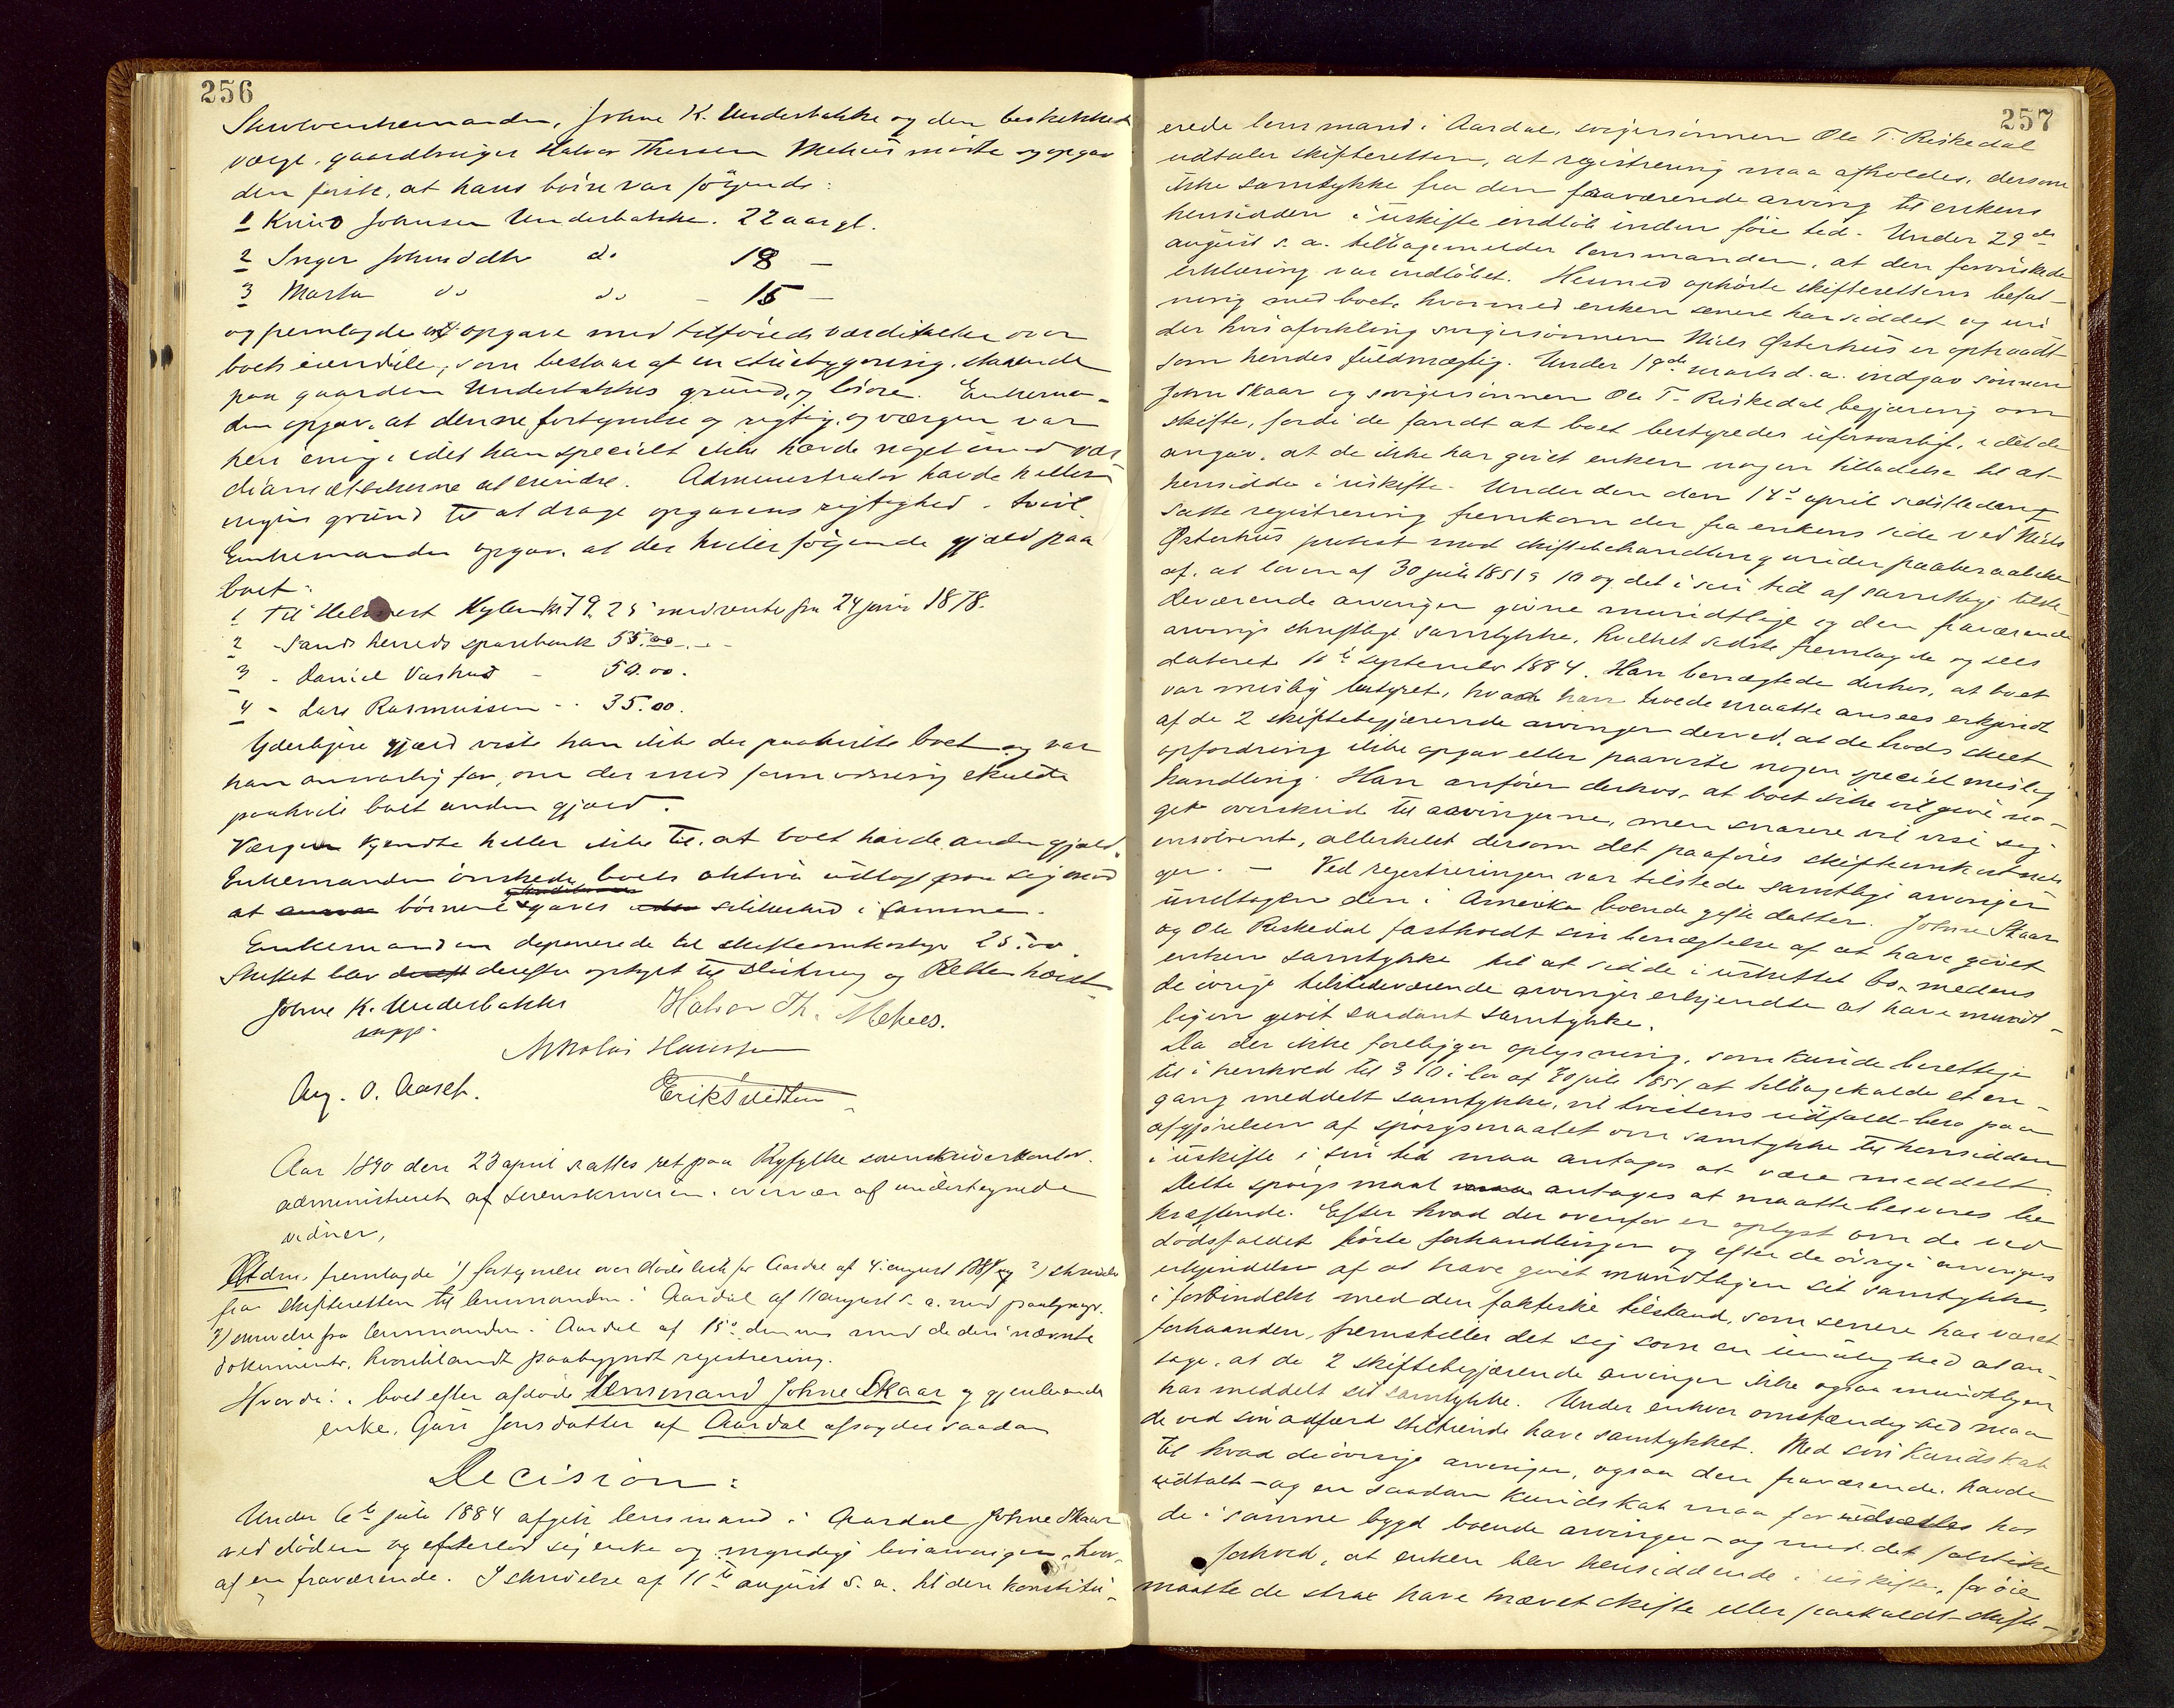 256
Enkemanden, Johne K. Underbakke og den beskikkede
værge, gaardbruger Halvor Thorsen Mehus mødte og opgav
den første, at hans børn var følgende:
1 Knud Johnsen Underbakke. 22 aar gl.
2 Inger Johnsdatter do 18 —
3 Marta do do - 15 —
og fremlagde en opgave med tilføiede værditakster over
boets eiendele, som bestaar af en stuebygning, staaende
paa gaarden Underbakkes grund, og løsøre. Enkeman-
den opgav, at denne fortegnelse er rigtig, og værgen var
heri enig, idet han specielt ikke havde noget imod vær
diansættelserne at erindre. Administrator havde heller
ingen grund til at drage opgavens rigtighed i tvivl.
Enkemanden opgav, at der hviler følgende gjæld paa
boet:
1 Til Helmert Hylen kr 79.25 med rente fra 24 juni 1878.
2 - Sands herreds sparebank 55.00 - . -
3 - Daniel Vashus - 50.00.
4 - Lars Rasmussen - . 35.00.
Yderligere gjæld viste han ikke der paahvilte boet og var
han ansvarlig for, om der mod formodning skulde
paahvile boet anden gjæld.
Værgen kjendte heller ikke til, at boet havde anden gjæld.
Enkemanden ønskede boets aktiva udlagt paa sig mod
at børnene gaves sikkerhed i samme.
Enkemanden deponerede til skifteomkostninger 25.00
Skiftet blev derefter optaget til slutning og Retten hævet
Johne K. Underbakke Halvor Th. Mehus.
m p p.
Nikolai Hansen
Aug. O. Aasef. Erik Svidtun
Aar 1890 den 23 april sattes ret paa Ryfylke sorenskriverkontor
administreret af sorenskriveren i overvær af undertegnede
vidner,
Adm. fremlagde 1) fortegnelse over dødsfald for Aardal af 4. august 1884 og 2) skrivelse
fra skifteretten til lensmanden i Aardal af 11 august s. a. med paategn.
3) skrivelse fra lensmanden i Aardal af 15de dennes med de deri nævnte
dokumenter, hvoriblandt paabegyndt registrering.
Hvorda: i boet efter afdøde lensmand Johne Skaar og gjenlevende
enke, Guri Jonsdatter af Aardal afsagdes saadan
Decision:
Under 6te juli 1884 afgik lensmand i Aardal Johne Skaar
ved døden og efterlod sig enke og myndige livsarvinger, hvor-
af en fraværende. I skrivelse af 11te august s. a. til den konstitu-
257
erede lensmand i Aardal, svigersønnen Ole T. Riskedal
udtaler skifteretten, at registrering maa afholdes, dersom
ikke samtykke fra den fraværende arving til enkens
hensidden i uskifte indløb inden føie tid. Under 29de
august s. a. tilbagemelder lensmanden, at den forønskede
erklæring var indløbet. Hermed ophørte skifterettens befat-
ning med boet, hvormed enken senere har siddet og un
der hvis afvikling svigersønnen Niels Østerhus er optraadt
som hendes fuldmægtig. Under 19de marts d. a. indgav sønnen
John Skaar og svigersønnen Ole T. Riskedal begjæring om
skifte, fordi de fandt at boet bestyredes uforsvarligt, idet de
angav, at de ikke har givet enken nogen tilladelse til at
hensidde i uskifte. Under den den 14de april sidstleden
satte registrering fremkom der fra enkens side ved Niels
Østerhus protest mod skiftebehandling under paaberaabelse
af, at loven af 30 juli 1851 § 10 og det i sin tid af samtlige tilste
deværende arvinger givne mundtlige og den fraværende
arvings skriftlige samtykke, hvilket sidste fremlagde og sees
dateret 10de september 1884. Han benægtede derhos, at boet
var mislig bestyret, hvad han trode maatte ansees erkjendt
af de 2 skiftebegjærende arvinger derved, at de trods skeet
opfordring ikke opgav eller paaviste nogen speciel mislig
handling. Han anfører derhos, at boet ikke vil give no-
get overskud til arvingerne, men snarere vil vise sig
insolvent, allerhelst dersom det paaføres skifteomkostnin
ger. — Ved registreringen var tilstede samtlige arvinger
undtagen den i Amerika boende gifte datter. Johne Skaar
og Ole Riskedal fastholdt sin benægtelse af at have givet
enken samtykke til at sidde i uskiftet bo, medens
de øvrige tilstedeværende arvinger erkjendte at have mundt-
ligen givet saadant samtykke.
Da der ikke foreligger oplysning, som kunde berettige
til i henhold til § 10 i lov af 30 juli 1851 at tilbagekalde et en-
gang meddelt samtykke, vil tvistens udfald bero paa
afgjørelsen af spørgsmaalet om samtykke til hensidden
i uskifte i sin tid maa antages at være meddelt.
Dette spørgsmaal antages at maatte besvares be
kræftende. Efter hvad der ovenfor er oplyst om de ved
dødsfaldet førte forhandlinger og efter de øvrige arvingers
erkjendelse af at have givet mundtligen sit samtykke,
i forbindelse med den faktiske tilstand, som senere har været
forhaanden, fremstiller det sig som en umulighed at an-
tage, at de 2 skiftebegjærende arvinger ikke ogsaa mundtligen
har meddelt sit samtykke. Under enhver omstændighed maa
de ved sin adfærd stiltiende have samtykket. Med sin kundskab
til hvad de øvrige arvinger, ogsaa den fraværende, havde
udtalt – og en saadan kundskab maa forudsættes hos
de i samme bygd boende arvinger – og med det faktiske
forhold, at enken blev hensiddende i uskifte, for øie
maatte de strax have krævet skifte eller paakaldt skifte-